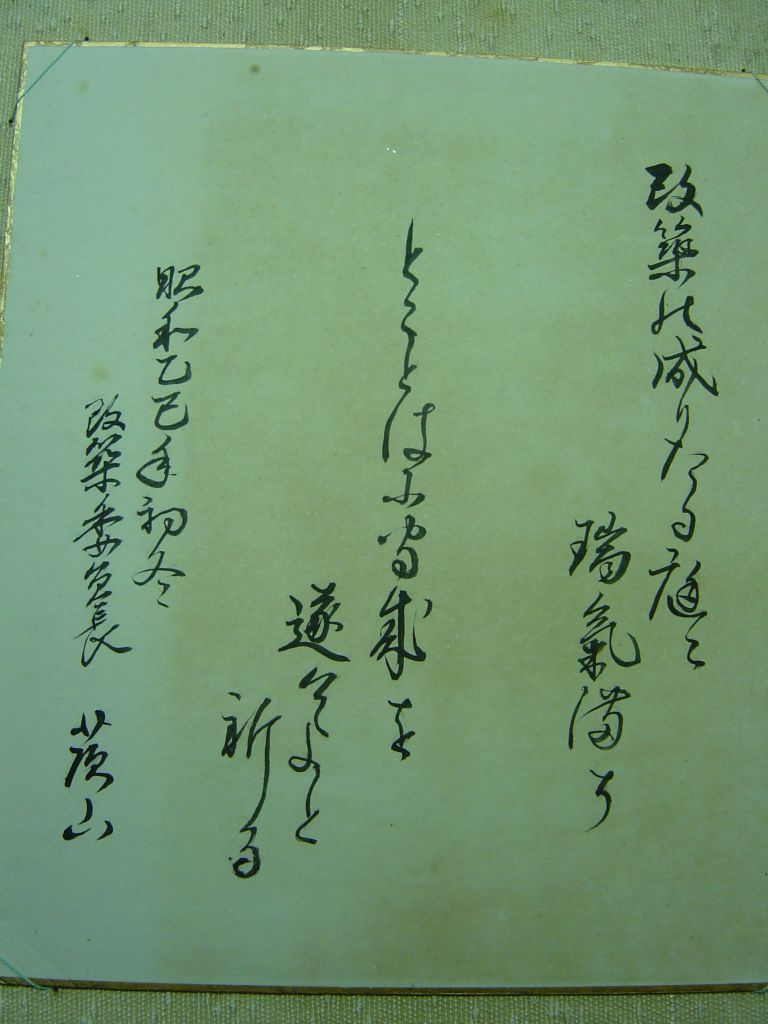 改築の成りたる庭に
瑞氣満ち
とことはに守成を
遂けよと
祈る
昭和乙巳年初冬
改築委員長 山